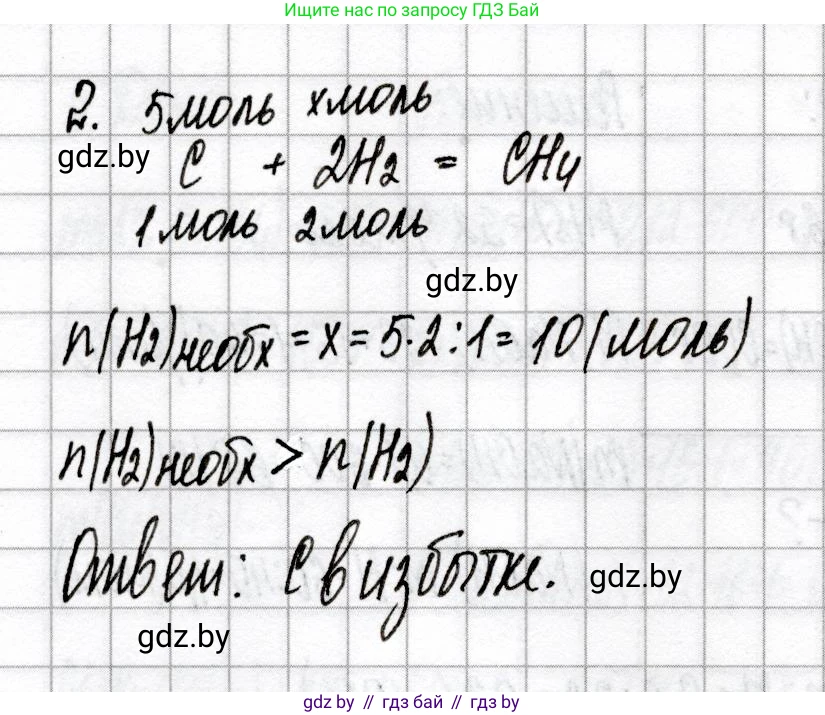 Ищите нас по запросу ГДЗ Бай
2. 5моль xмоль
gdz.by
C + 2H2 = CH4
1моль 2моль
gdz.by
n(H2)необх = x = 5·2:1 = 10(моль)
n(H2)необх > n(H2)
Ответ: C в избытке.
gdz.by
gdz.by
gdz.by // гдз бай // gdz.by